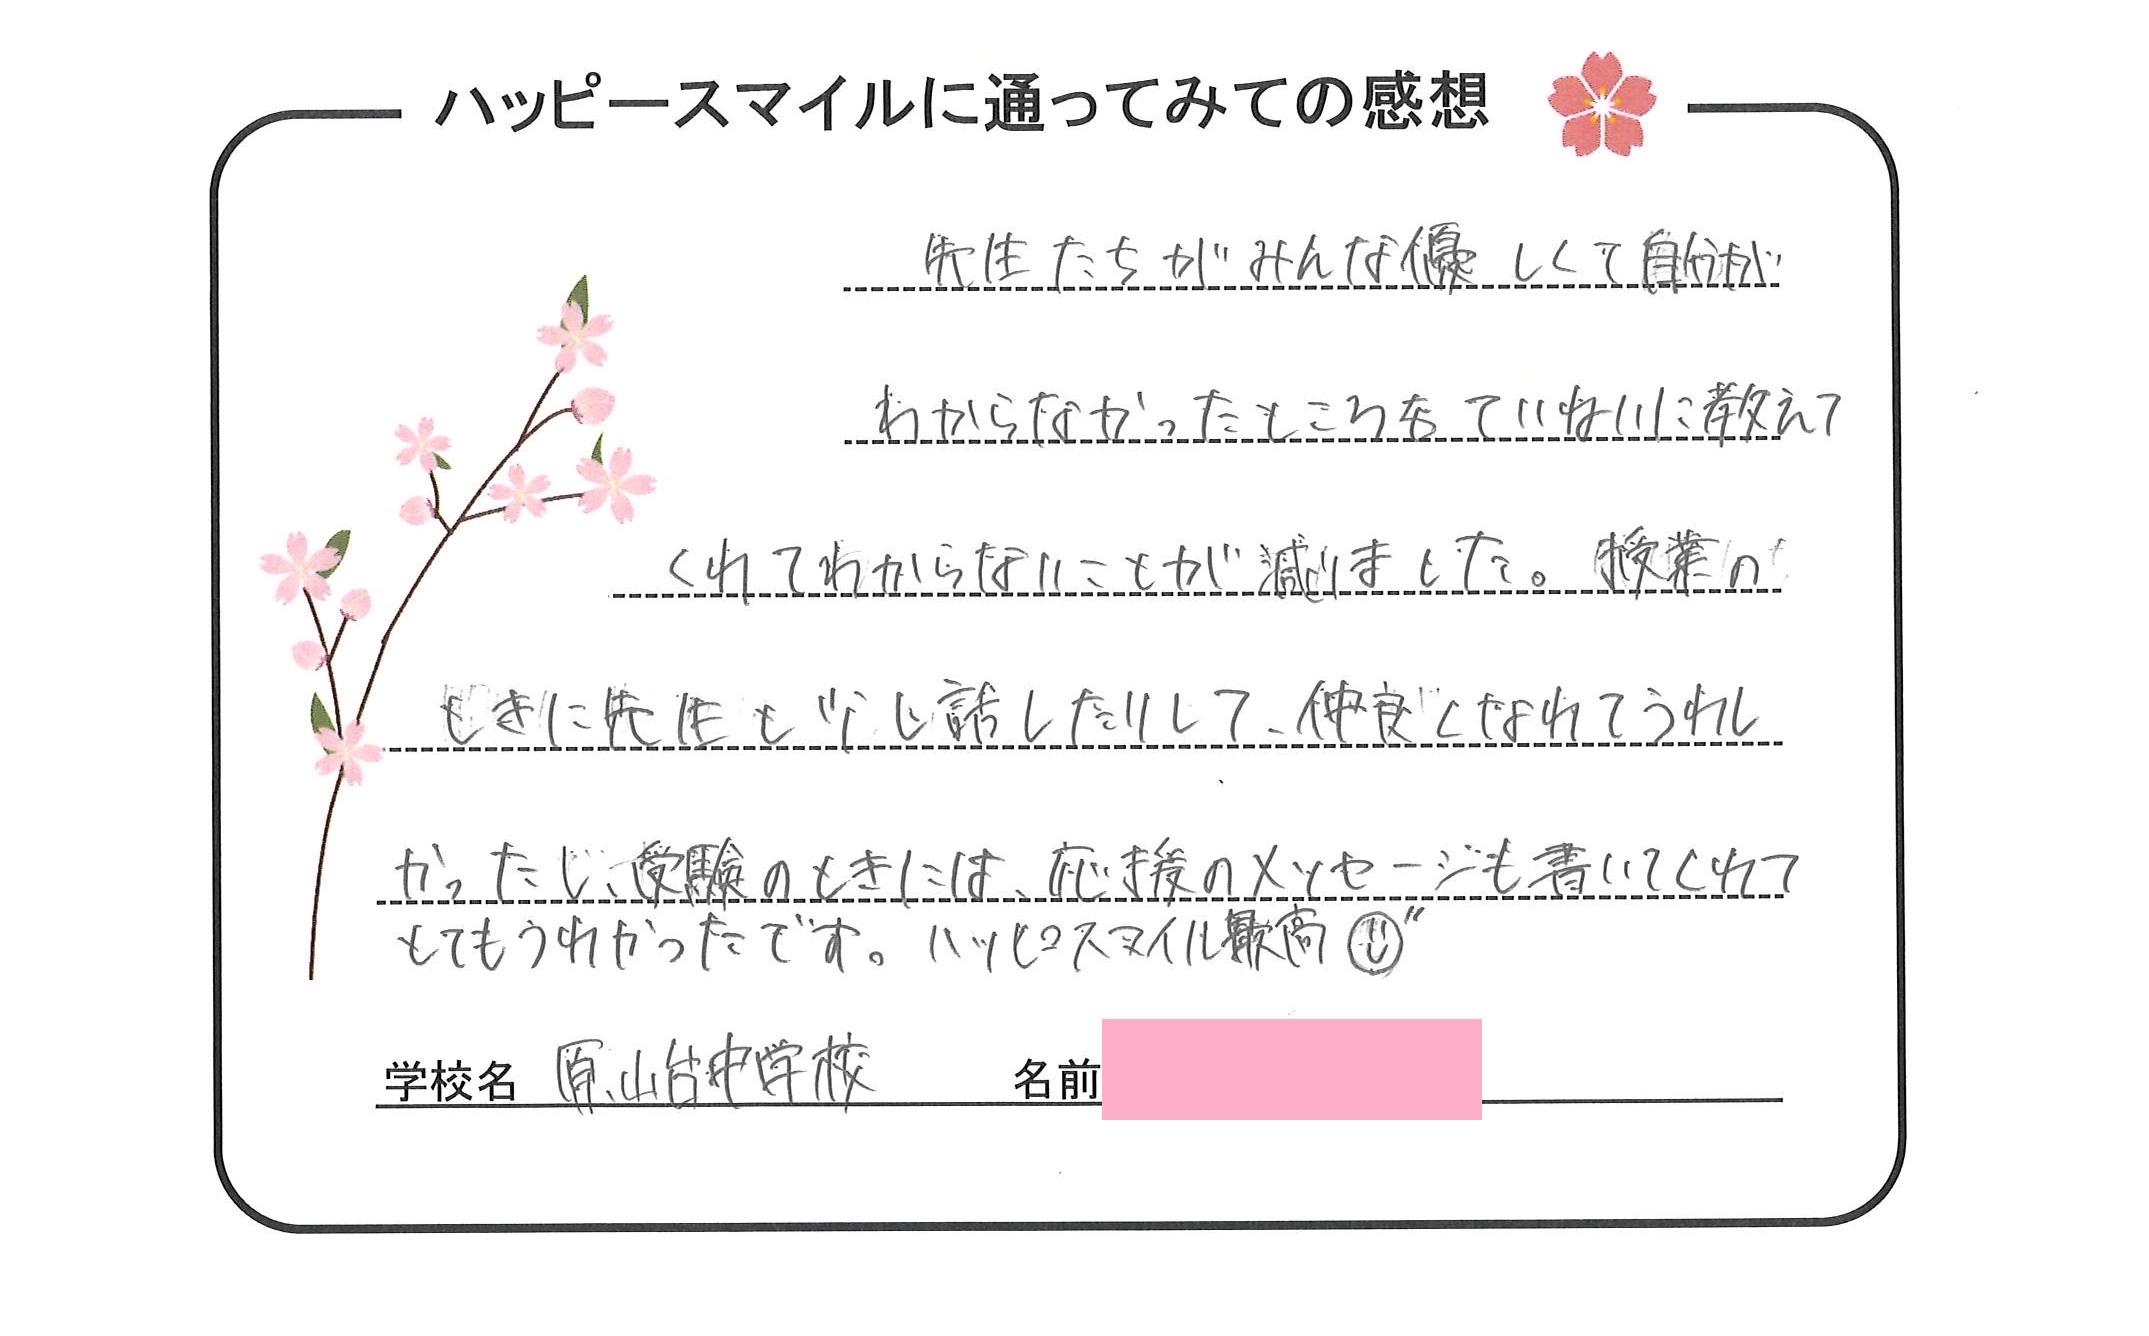 ハッピースマイルに通ってみての感想
先生たちがみんな優しくて自分が
わからなかったところをていねいに教えて
くれてわからないことが減りました。授業の
ときに先生と少し話したりして、仲良くなれてうれし
かったし、受験のときには、応援のメッセージも書いてくれて
とてもうれかったです。ハッピースマイル最高
学校名 原山台中学校 名前